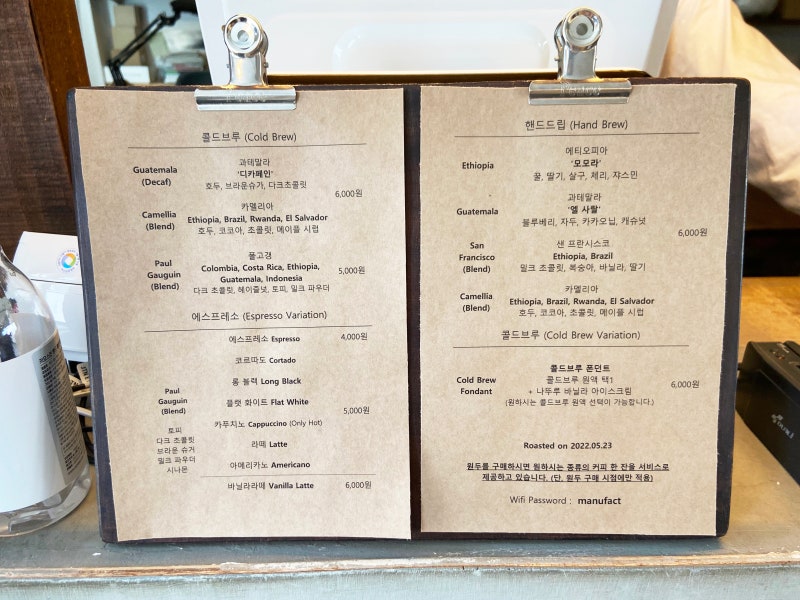 콜드브루 (Cold Brew)
Guatemala
(Decaf)
과테말라
'디카페인'
호두, 브라운슈가, 다크초콜릿
6,000원
Camellia
(Blend)
카멜리아
Ethiopia, Brazil, Rwanda, El Salvador
호두, 코코아, 초콜릿, 메이플 시럽
Paul
Gauguin
(Blend)
폴고갱
Colombia, Costa Rica, Ethiopia,
Guatemala, Indonesia
다크 초콜릿, 헤이즐넛, 토피, 밀크 파우더
5,000원
에스프레소 (Espresso Variation)
에스프레소 Espresso
4,000원
코르따도 Cortado
롱 블랙 Long Black
Paul
Gauguin
(Blend)
토피
다크 초콜릿
브라운 슈거
밀크 파우더
시나몬
플랫 화이트 Flat White
5,000원
카푸치노 Cappuccino (Only Hot)
라떼 Latte
아메리카노 Americano
바닐라라떼 Vanilla Latte
6,000원
핸드드립 (Hand Brew)
Ethiopia
에티오피아
'모모라'
꿀, 딸기, 살구, 체리, 쟈스민
Guatemala
과테말라
'엘 사랄'
블루베리, 자두, 카카오닙, 캐슈넛
6,000원
San
Francisco
(Blend)
샌 프란시스코
Ethiopia, Brazil
밀크 초콜릿, 복숭아, 바닐라, 딸기
Camellia
(Blend)
카멜리아
Ethiopia, Brazil, Rwanda, El Salvador
호두, 코코아, 초콜릿, 메이플 시럽
콜드브루 (Cold Brew Variation)
Cold Brew
Fondant
콜드브루 폰던트
콜드브루 원액 택1
+ 나뚜루 바닐라 아이스크림
(원하시는 콜드브루 원액 선택이 가능합니다.)
6,000원
Roasted on 2022.05.23
원두를 구매하시면 원하시는 종류의 커피 한 잔을 서비스로
제공하고 있습니다. (단, 원두 구매 시점에만 적용)
Wifi Password : manufact